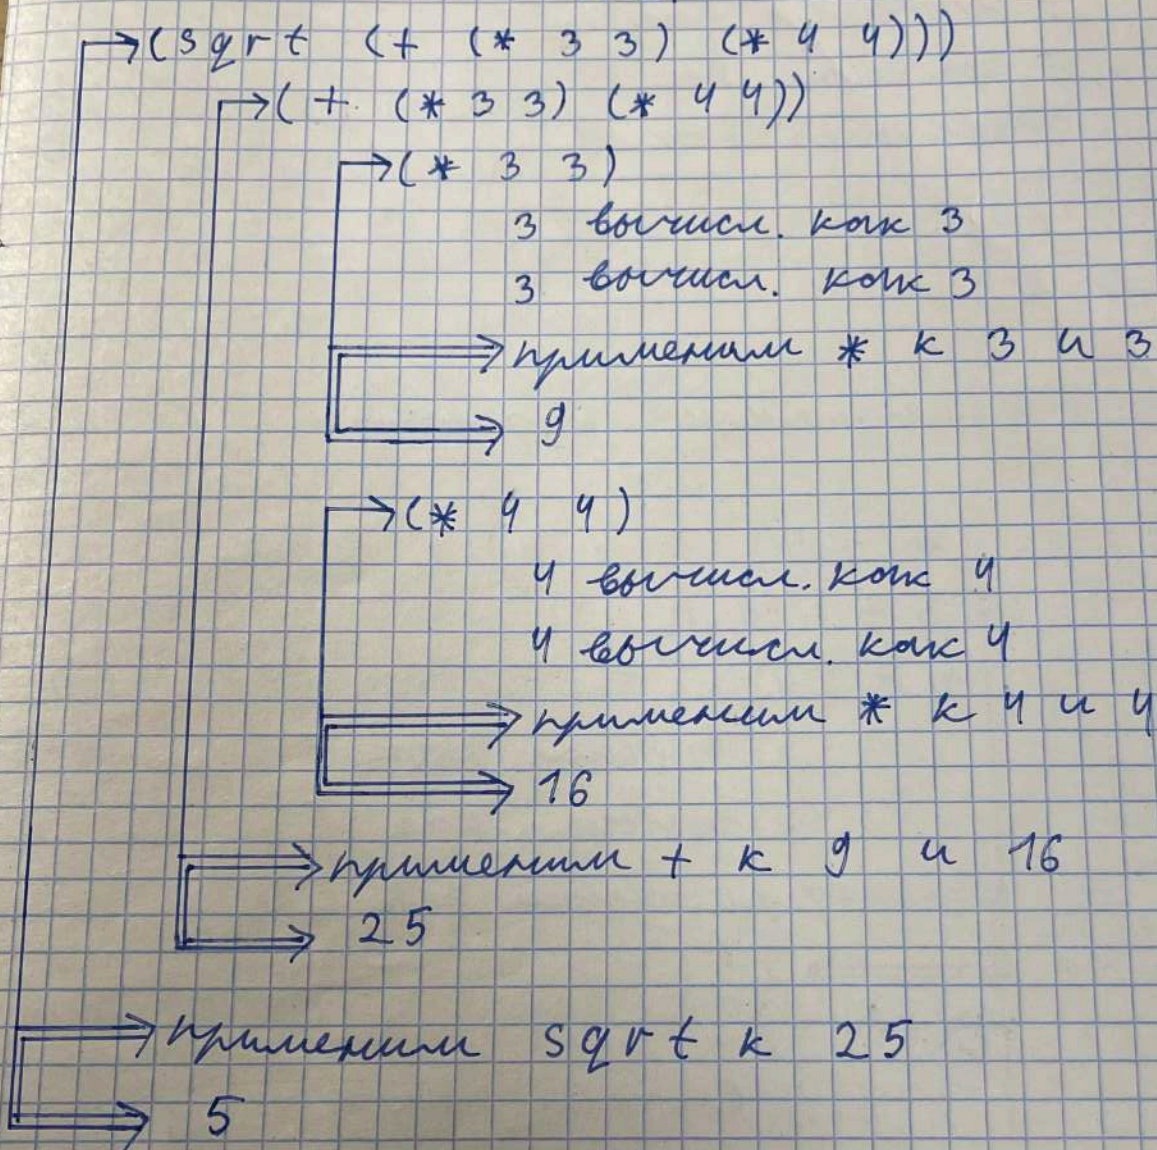 (sqrt (+ (* 3 3) (* 4 4)))
(+ (* 3 3) (* 4 4))
(* 3 3)
3 вычисл. как 3
3 вычисл. как 3
применим * к 3 и 3
9
(* 4 4)
4 вычисл. как 4
4 вычисл. как 4
применим * к 4 и 4
16
применим + к 9 и 16
25
применим sqrt к 25
5